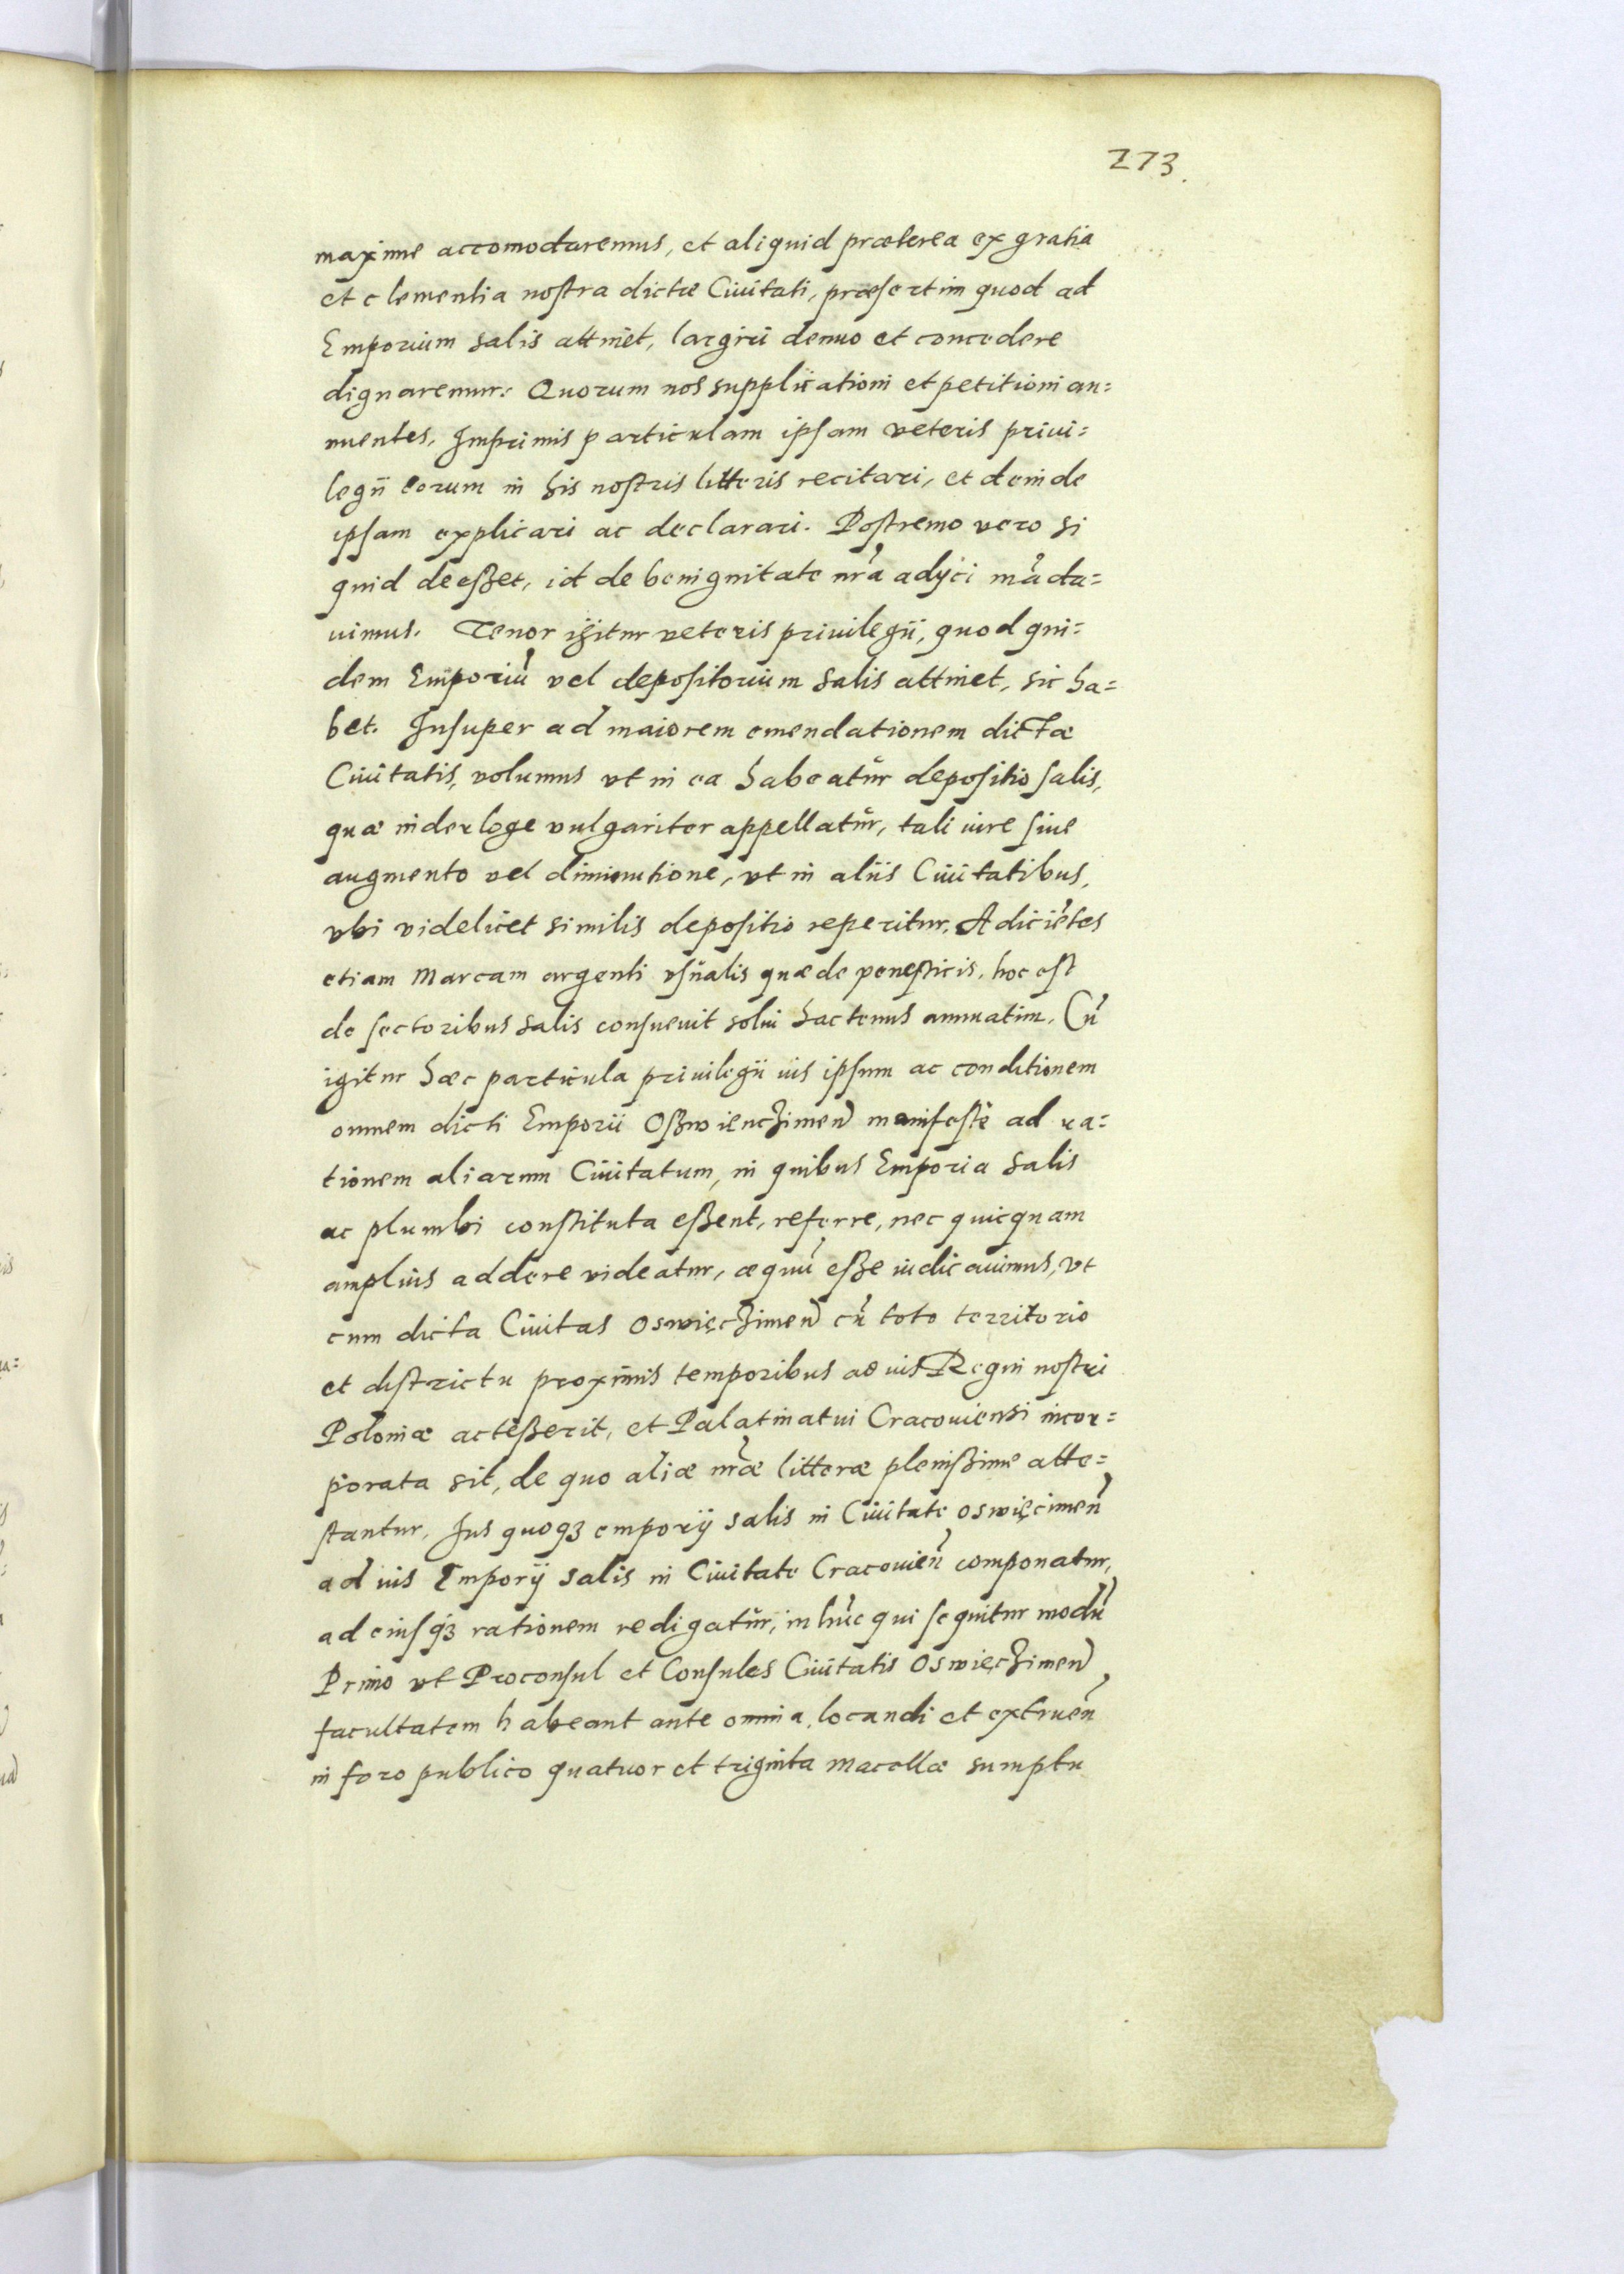 273.
maxime accomodaremus, et aliquid præterea ex gratia
et clementia nostra dictæ Ciuitati, præsertim quod ad
Emporium salis attinet, largiri denuo et concedere
dignaremur: Quorum nos supplicationi et petitioni an=
nuentes, Imprimis particulam ipsam veteris priui=
legii eorum in his nostris litteris recitari, et deinde
ipsam explicari ac declarari. Postremo vero si
quid deeßet, id de benignitate nr̃a adijci mãda=
uimus. Tenor igitur veteris priuilegii, quod qui=
dem Emporiũ vel depositorium salis attinet, sic ha=
bet. Insuper ad maiorem emendationem dictæ
Ciuitatis, volumus vt in ea habeatur depositio salis,
quæ inderloge vulgariter appellatur, tali iure siue
augmento vel diminutione, vt in aliis Ciuitatibus,
vbi videlicet similis depositio reperitur. Adiciẽtes
etiam Marcam argenti vsualis quæ de penesticis, hoc est
de sectoribus salis consueuit solui hactenus annuatim. Cũ
igitur hæc particula priuilegii ius ipsum ac conditionem
omnem dicti Emporii Oßwienczimen̄ manifestè ad ra=
tionem aliarum Ciuitatum, in quibus Emporia salis
ac plumbi constituta eßent, referre, nec quicquam
amplius addere videatur, æquũ eße iudicauimus, vt
cum dicta Ciuitas Oswięczimen̄ cũ toto territorio
et districtu proximis temporibus ad ius Regni nostri
Poloniæ acceßerit, et Palatinatui Cracouiensi incor=
porata sit, de quo aliæ nr̃æ litteræ plenißime atte=
stantur, Ius quoqꝫ emporij salis in Ciuitate oswięcimeñ
ad ius Emporij salis in Ciuitate Cracouieñ componatur,
ad eiusqꝫ rationem redigatur, in hũc qui sequitur modũ
Primo vt Proconsul et Consules Ciuitatis Oswięczimen̄
facultatem habeant ante omnia, locandi et extrueñ
in foro publico quatuor et triginta macellæ sumptu